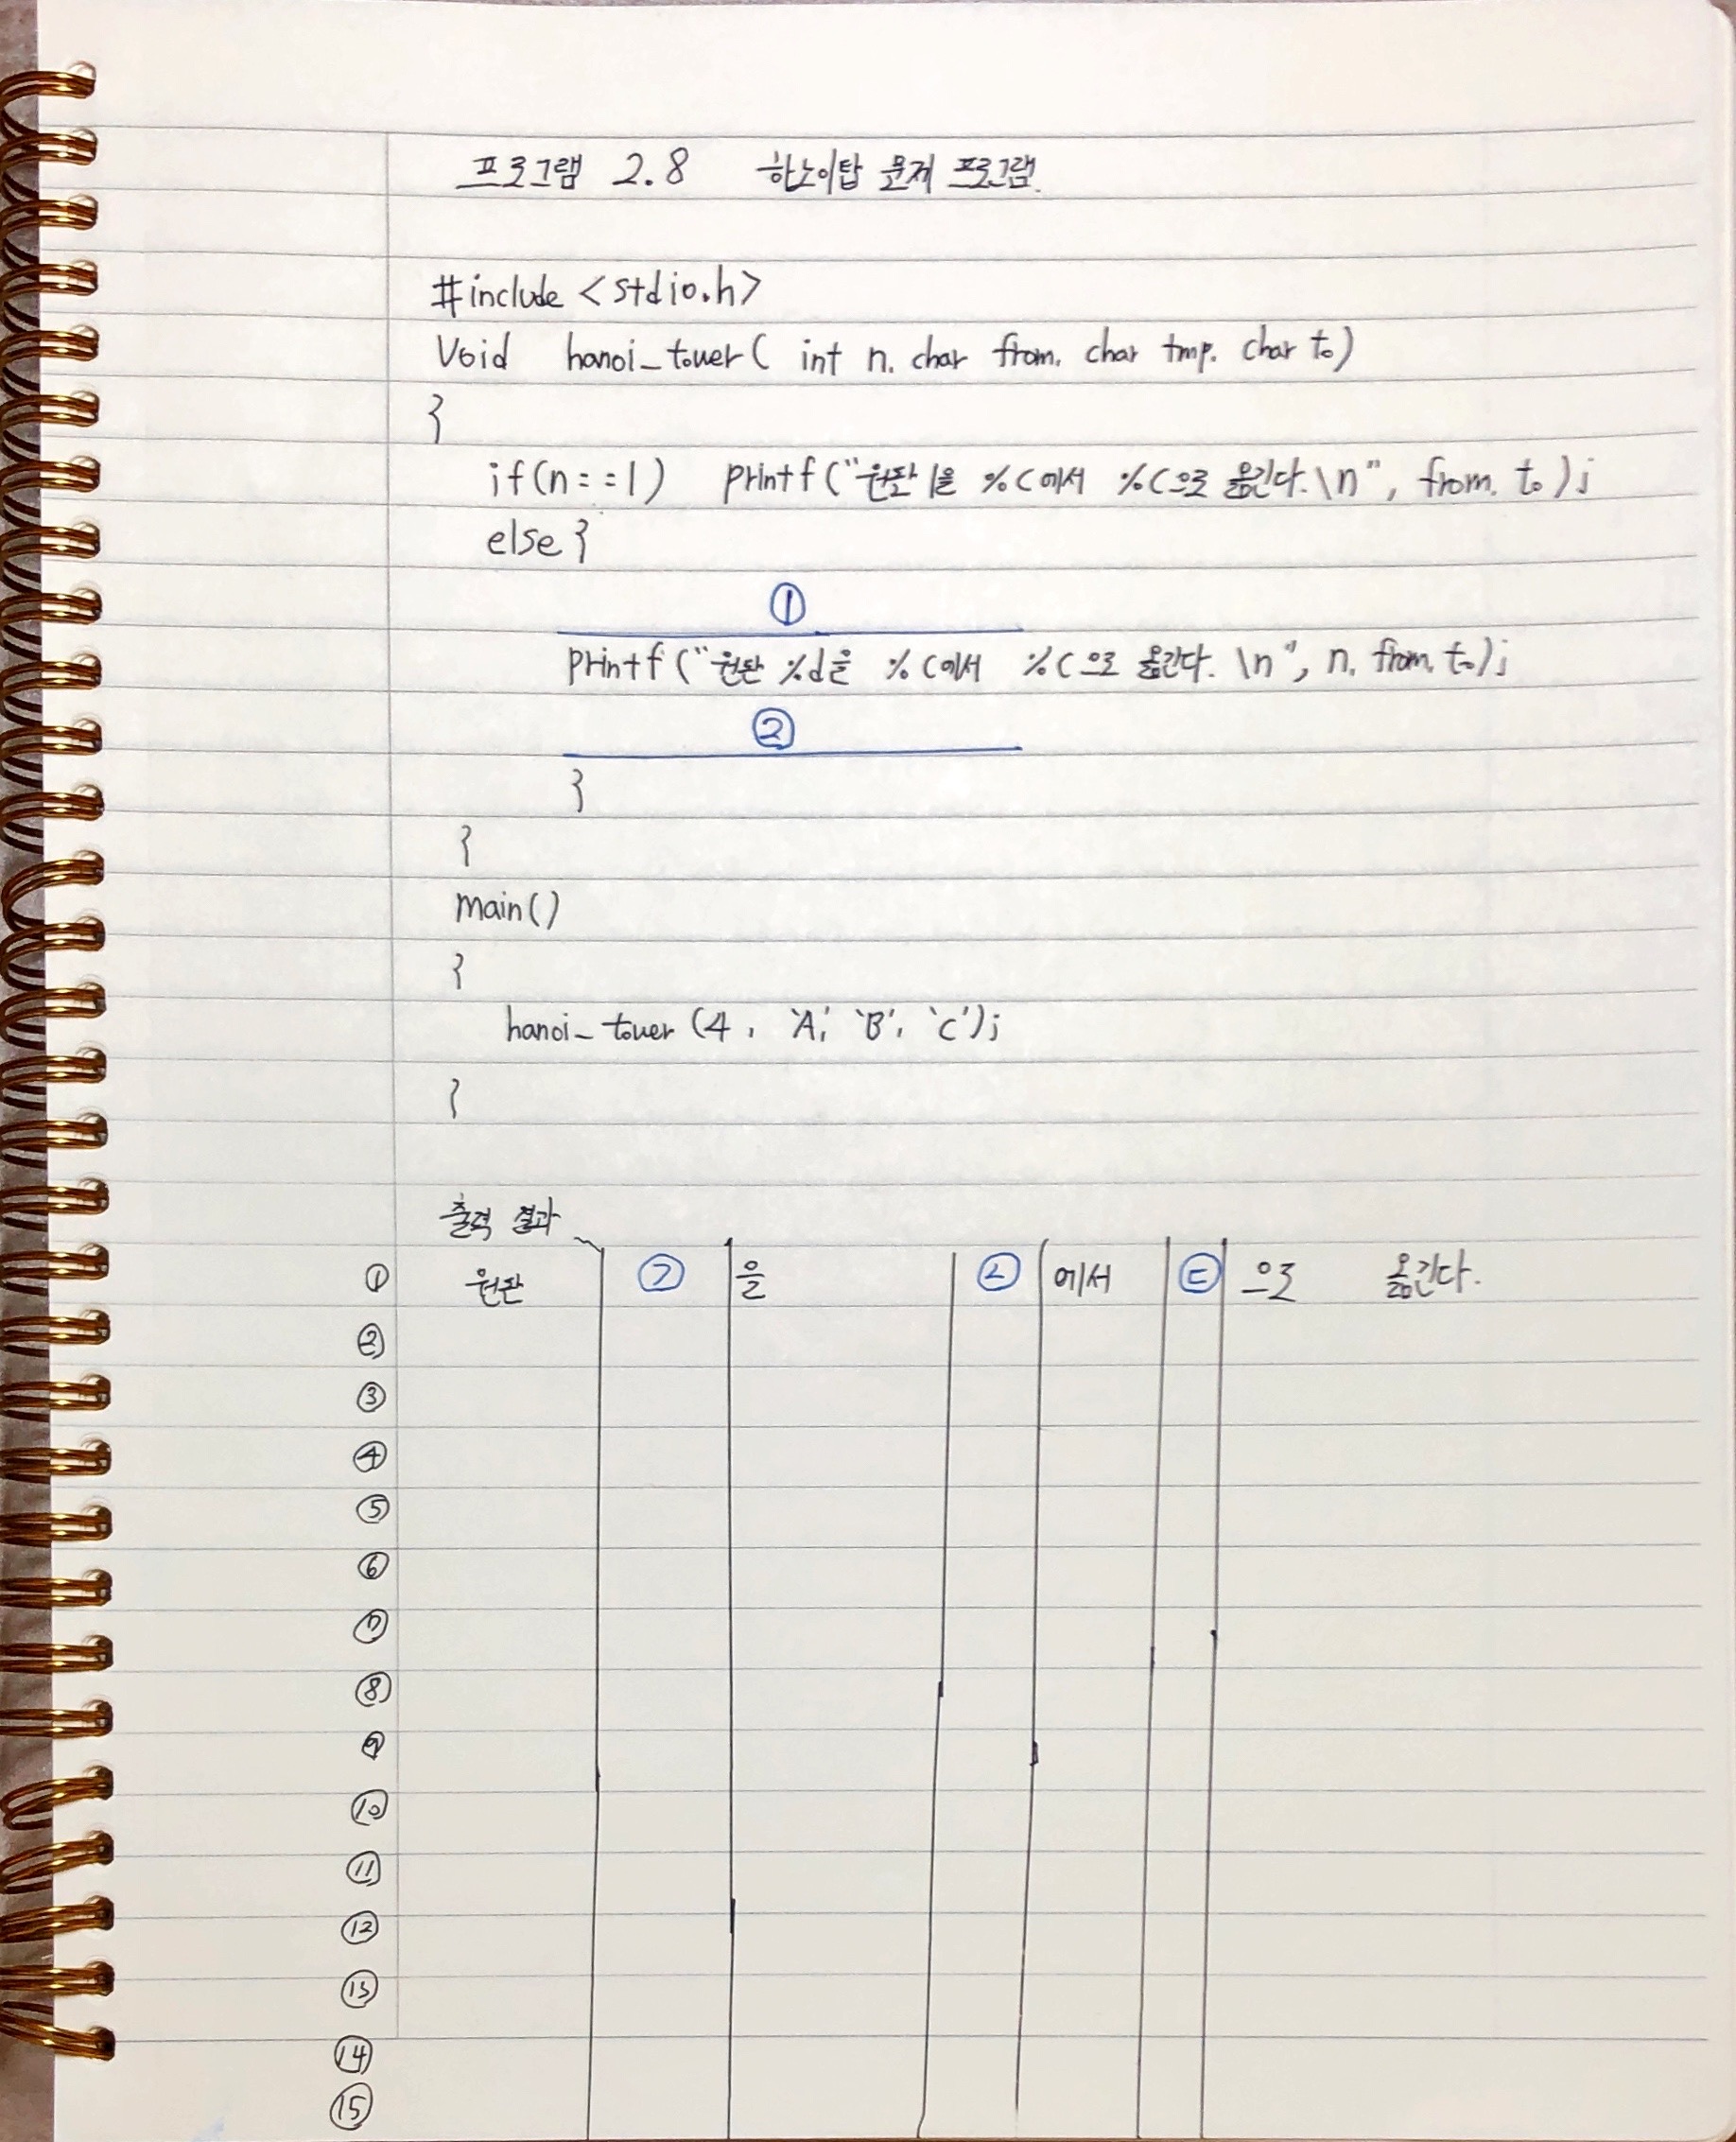 프로그램 2.8 하노이탑 문제 프로그램.
#include <stdio.h>
Void hanoi_tower( int n, char from, char tmp, char to)
{
if(n==1) printf("원판 1을 %c에서 %c으로 옮긴다.\n", from, to);
else{
①
printf("원판 %d을 %c에서 %c으로 옮긴다. \n", n, from, to);
②
}
}
main()
{
hanoi_tower (4, 'A', 'B', 'C');
}
출력 결과
① 원판 ㉠ 을 ㉡ 에서 ㉢ 으로 옮긴다.
②
③
④
⑤
⑥
⑦
⑧
⑨
⑩
⑪
⑫
⑬
⑭
⑮